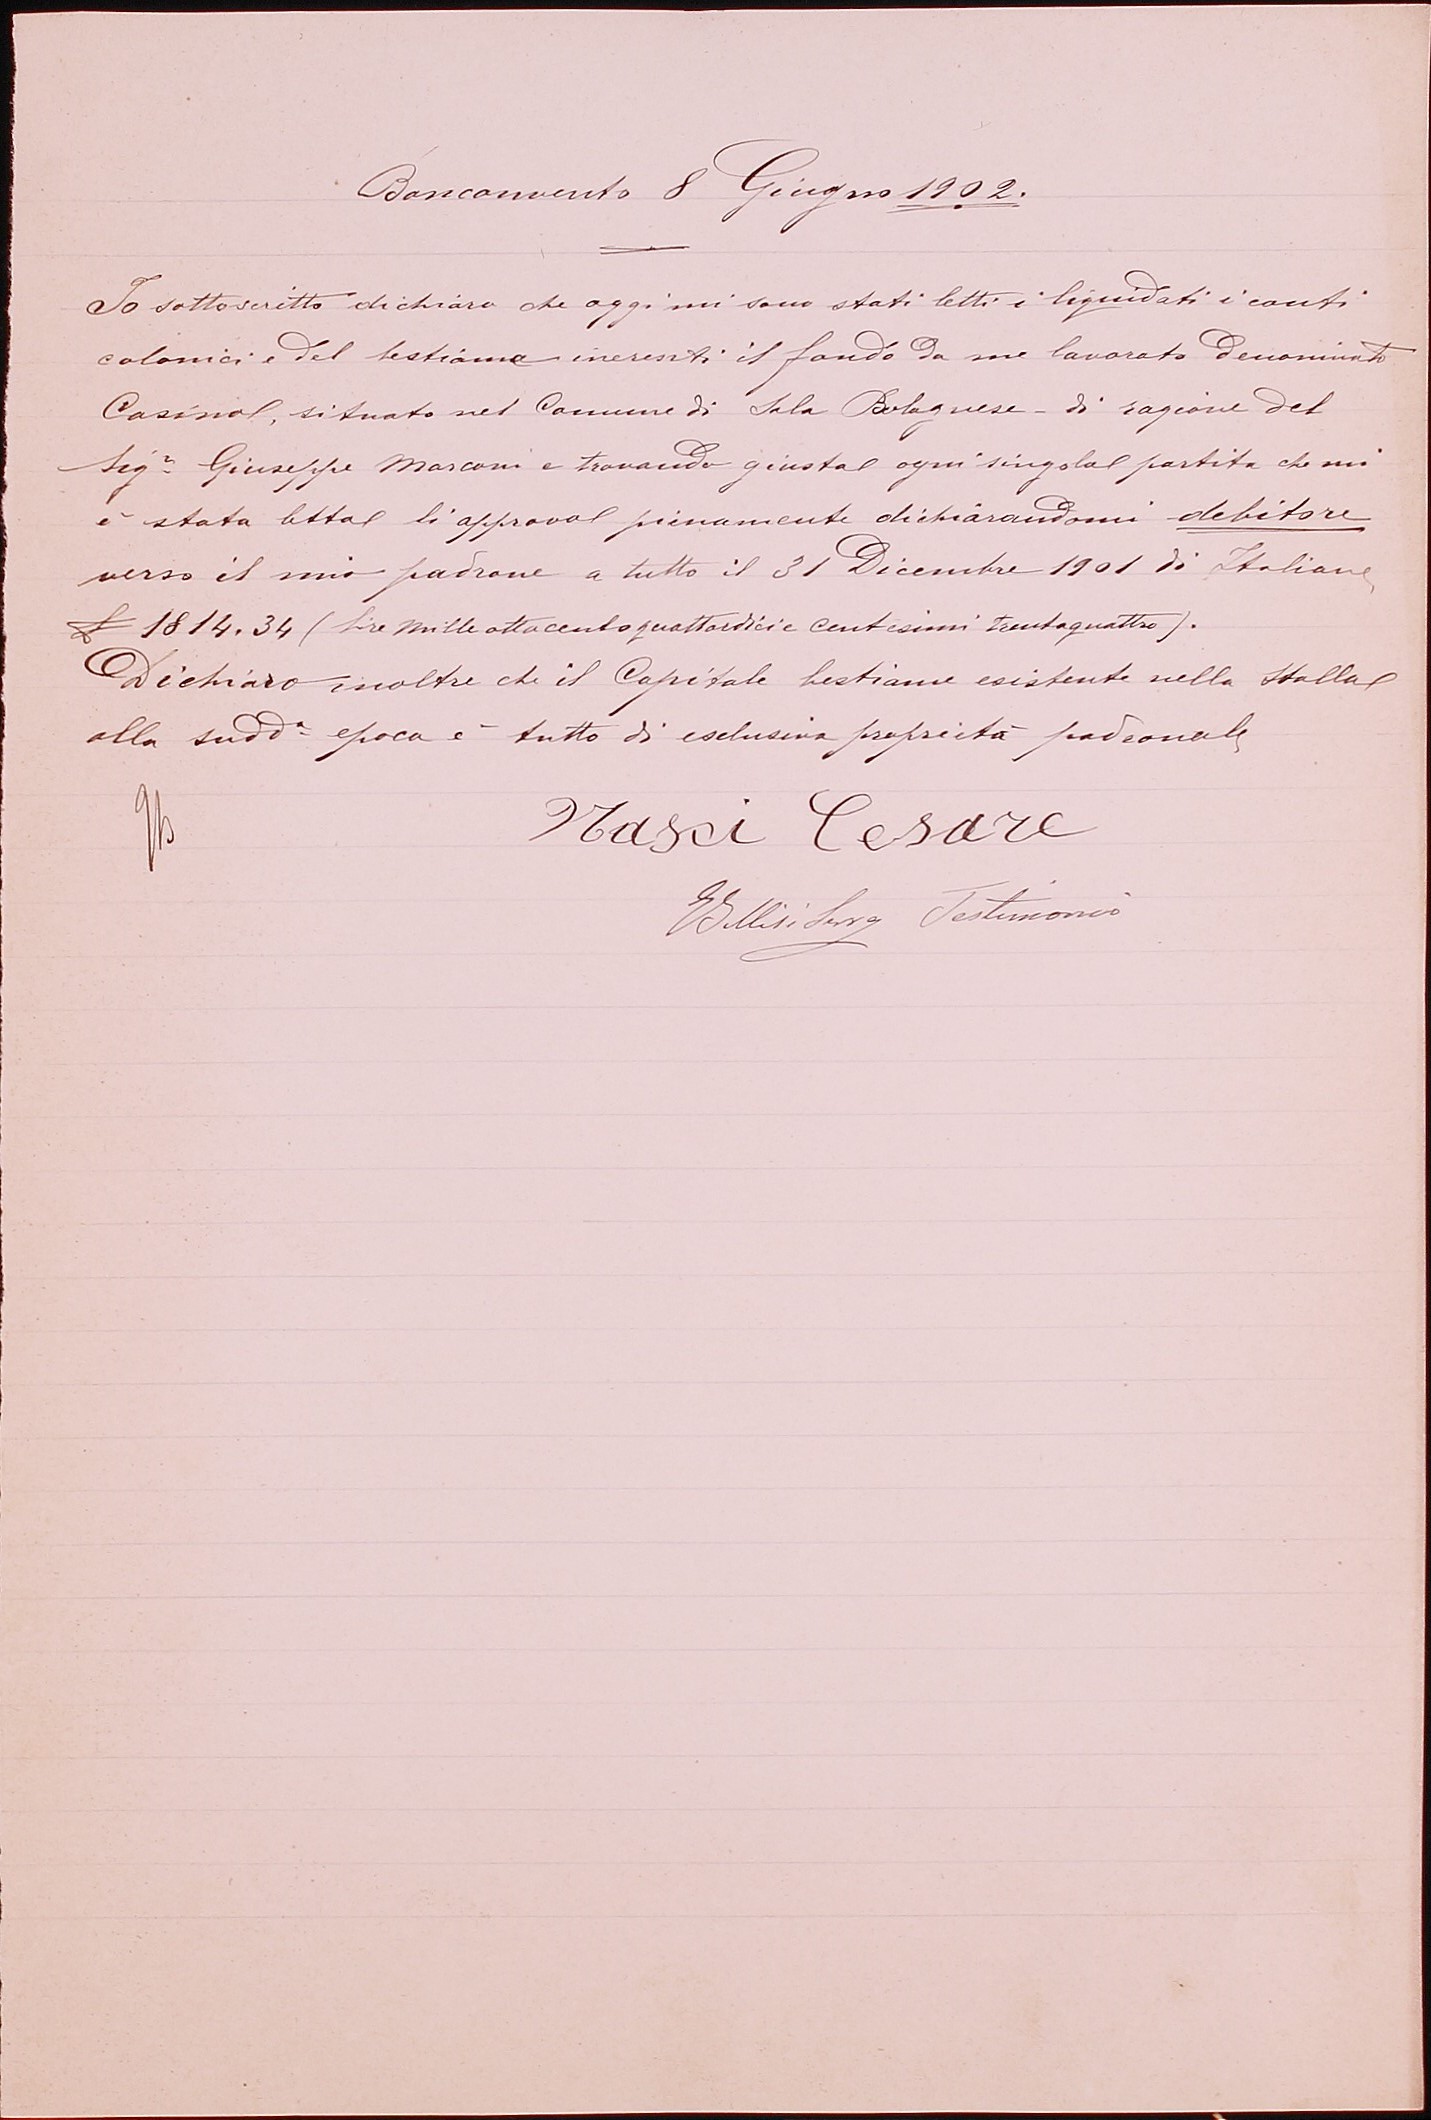 Bonconvento 8 Giugno 1902.
Io sottoscritto dichiaro che oggi mi sono stati letti i liquidati i conti
colonici e del bestiame inerenti il fondo da me lavorato denominato
Casino, situato nel Comune di Sala Bolognese - di ragione del
Sigr. Giuseppe Marconi e trovando giusta ogni singola partita che mi
è stata letta li approvo pienamente dichiarandomi debitore
verso il mio padrone a tutto il 31 Dicembre 1901 di Italiane
£ 1814.34 (Lire mille ottocentoquattordici e centesimi trentaquattro).
Dichiaro inoltre che il Capitale bestiame esistente nella Stalla
alla sudda. epoca è tutto di esclusiva proprietà padronale
Cesare
Testimonio